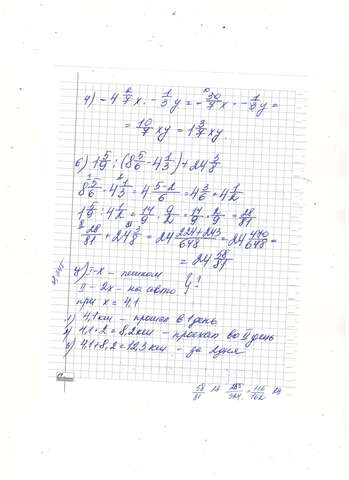 4) -4 2/7 x · - 1/3 y = - 30/7 x · - 1/3 y =
= 10/7 xy = 1 3/7 xy
б) 1 5/9 : (8 5/6 - 4 1/3) + 24 3/8
8 5/6 - 4 1/3 = 4 (5-2)/6 = 4 3/6 = 4 1/2
1 5/9 : 4 1/2 = 14/9 : 9/2 = 14/9 · 2/9 = 28/81
28/81 + 24 3/8 = 24 (224+243)/648 = 24 470/648 =
= 24 58/81
I - x - пешком
II - 2x - на авто } ?
при x = 4,1
1) 4,1 км - прошел в 1 день
2) 4,1 · 2 = 8,2 км - проехал во II день
3) 4,1 + 8,2 = 12,3 км - за 2 дня
58/81